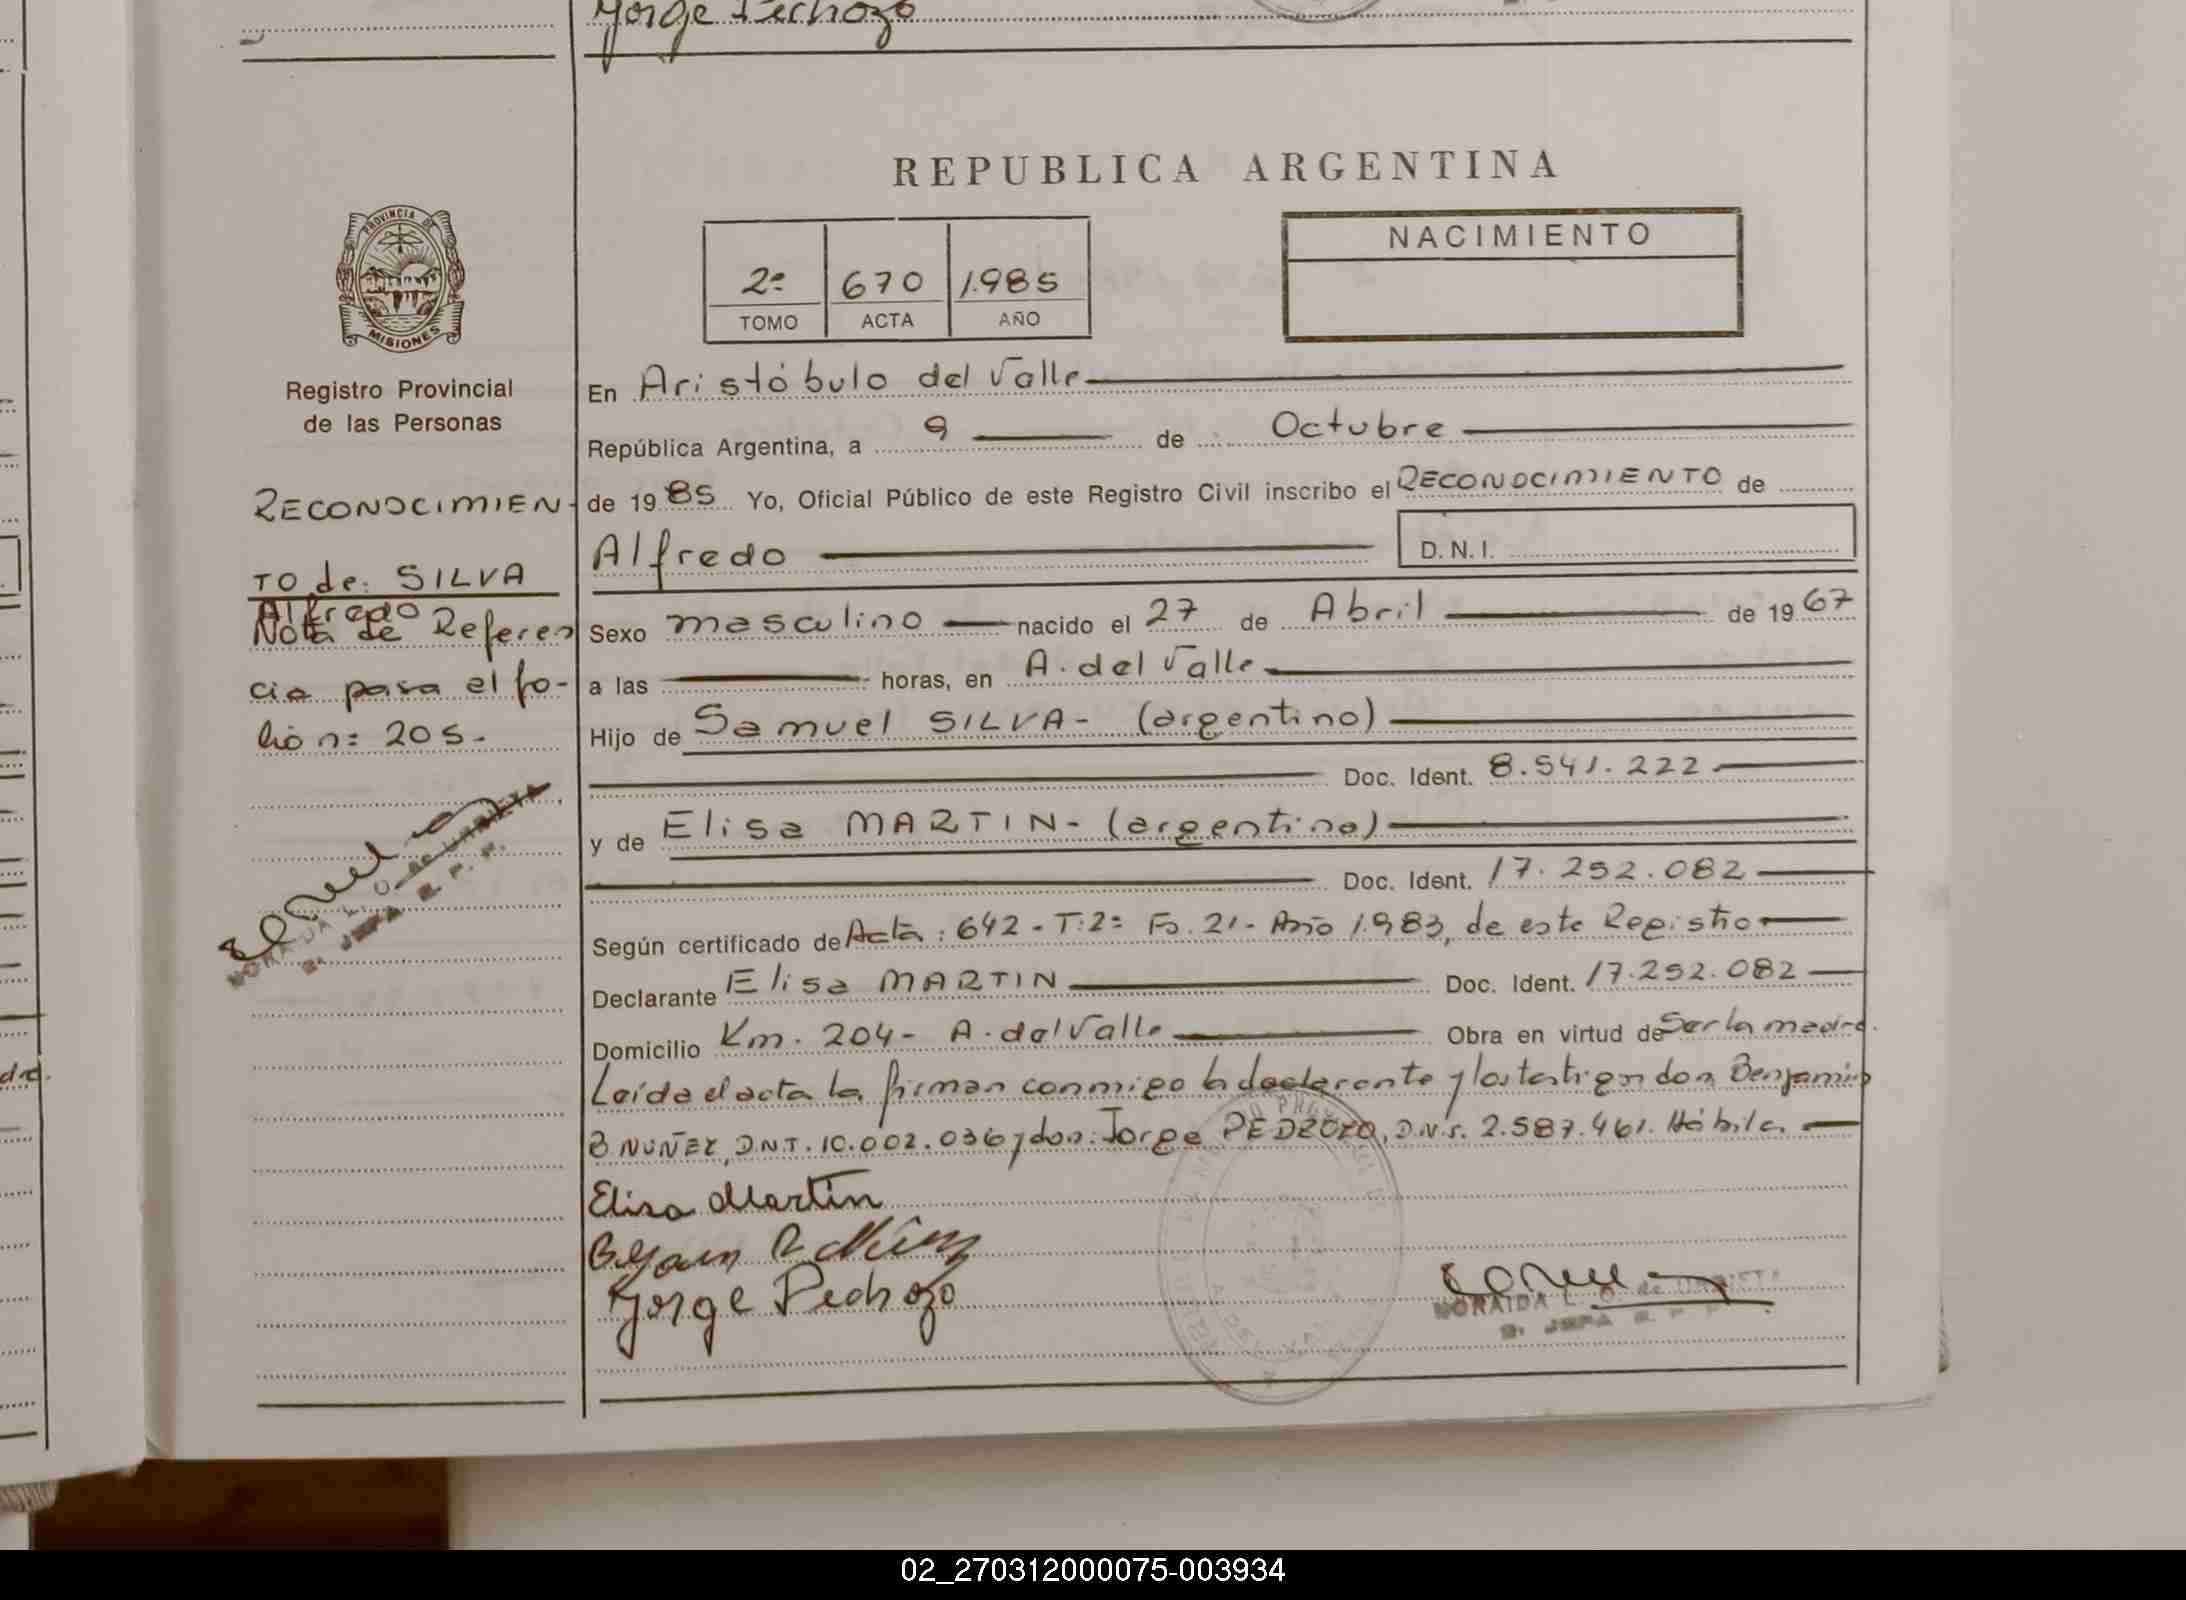 Jorge Pedrozo
REPUBLICA ARGENTINA
PROVINCIA DE
MISIONES
Registro Provincial
de las Personas
2º 670 1.985
TOMO ACTA AÑO
NACIMIENTO
En Aristóbulo del Valle
República Argentina, a 9 de Octubre
de 1985 Yo, Oficial Público de este Registro Civil inscribo el RECONOCIMIENTO de
Alfredo D.N.I.
Sexo masculino nacido el 27 de Abril de 1967
a las horas, en A. del Valle
Hijo de Samuel SILVA- (argentino)
Doc. Ident. 8.541.222
y de Elisa MARTIN- (argentina)
Doc. Ident. 17.252.082
Según certificado de Acta: 642 - T:2º Fo. 21- Año 1.983, de este Registro
Declarante Elisa MARTIN Doc. Ident. 17.252.082
Domicilio Km. 204- A. del Valle Obra en virtud de Ser la madre.
Leída el acta la firman conmigo la declarante y los testigos don Benjamin
B. NUÑEZ, D.N.I. 10.002.036 y don: Jorge PEDROZO, D.N.I. 2.587.461. Hábiles.
Elisa Martin
Jorge Pedrozo
NORAIDA L. O. de URRIETA
S. JEFA R. P. P.
RECONOCIMIEN-
TO de: SILVA
Alfredo
Nota de Referen
cia para el fo-
lio n: 205.
NORAIDA L. O. de URRIETA
S. JEFA R. P. P.
02_270312000075-003934